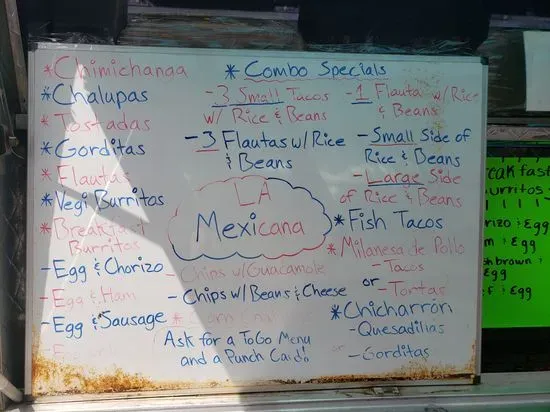 *Chimichanga
*Chalupas
*Tostadas
*Gorditas
*Flautas
*Vegi Burritos
*Breakfast
Burritos
-Egg & Chorizo
-Egg & Ham
-Egg & Sausage
* Combo Specials
-3 Small Tacos
w/ Rice & Beans
-3 Flautas w/ Rice
& Beans
-1 Flauta w/ Rice
& Beans
-Small Side of
Rice & Beans
-Large Side
of Rice & Beans
LA
Mexicana
-Chips w/Guacamole
-Chips w/ Beans & Cheese
Ask for a ToGo Menu
and a Punch Card!
*Fish Tacos
*Milanesa de Pollo
-Tacos
or
-Tortas
*Chicharrón
-Quesadillas
-Gorditas
eakfast
urritos
rizo & Egg
m & Egg
sh brown &
Egg
f & Egg